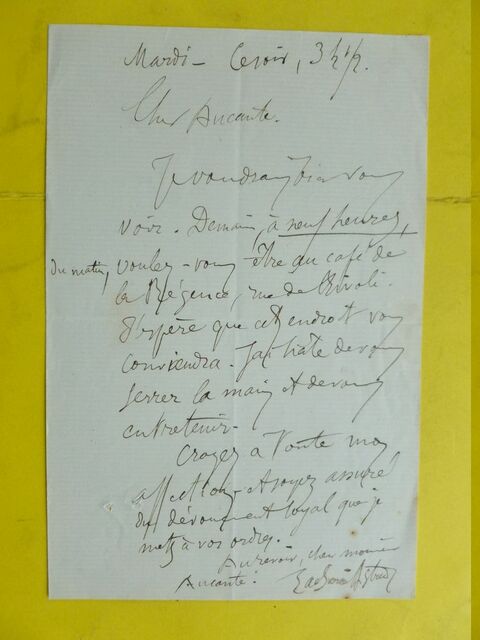 Mardi - Ce soir, 3 h 1/2.
Cher Aucante.
Je voudrais bien vous
voir. Demain, à neuf heures,
du matin, voulez-vous être au café de
la Régence, rue de Rivoli.
J'espère que cet endroit vous
conviendra. J'ai hâte de vous
serrer la main et de vous
entretenir.
Croyez à toute mon
affection - et soyez assuré
du dévouement loyal que je
mets à vos ordres.
Au revoir, cher monsieur
Aucante. Zacharie Astruc